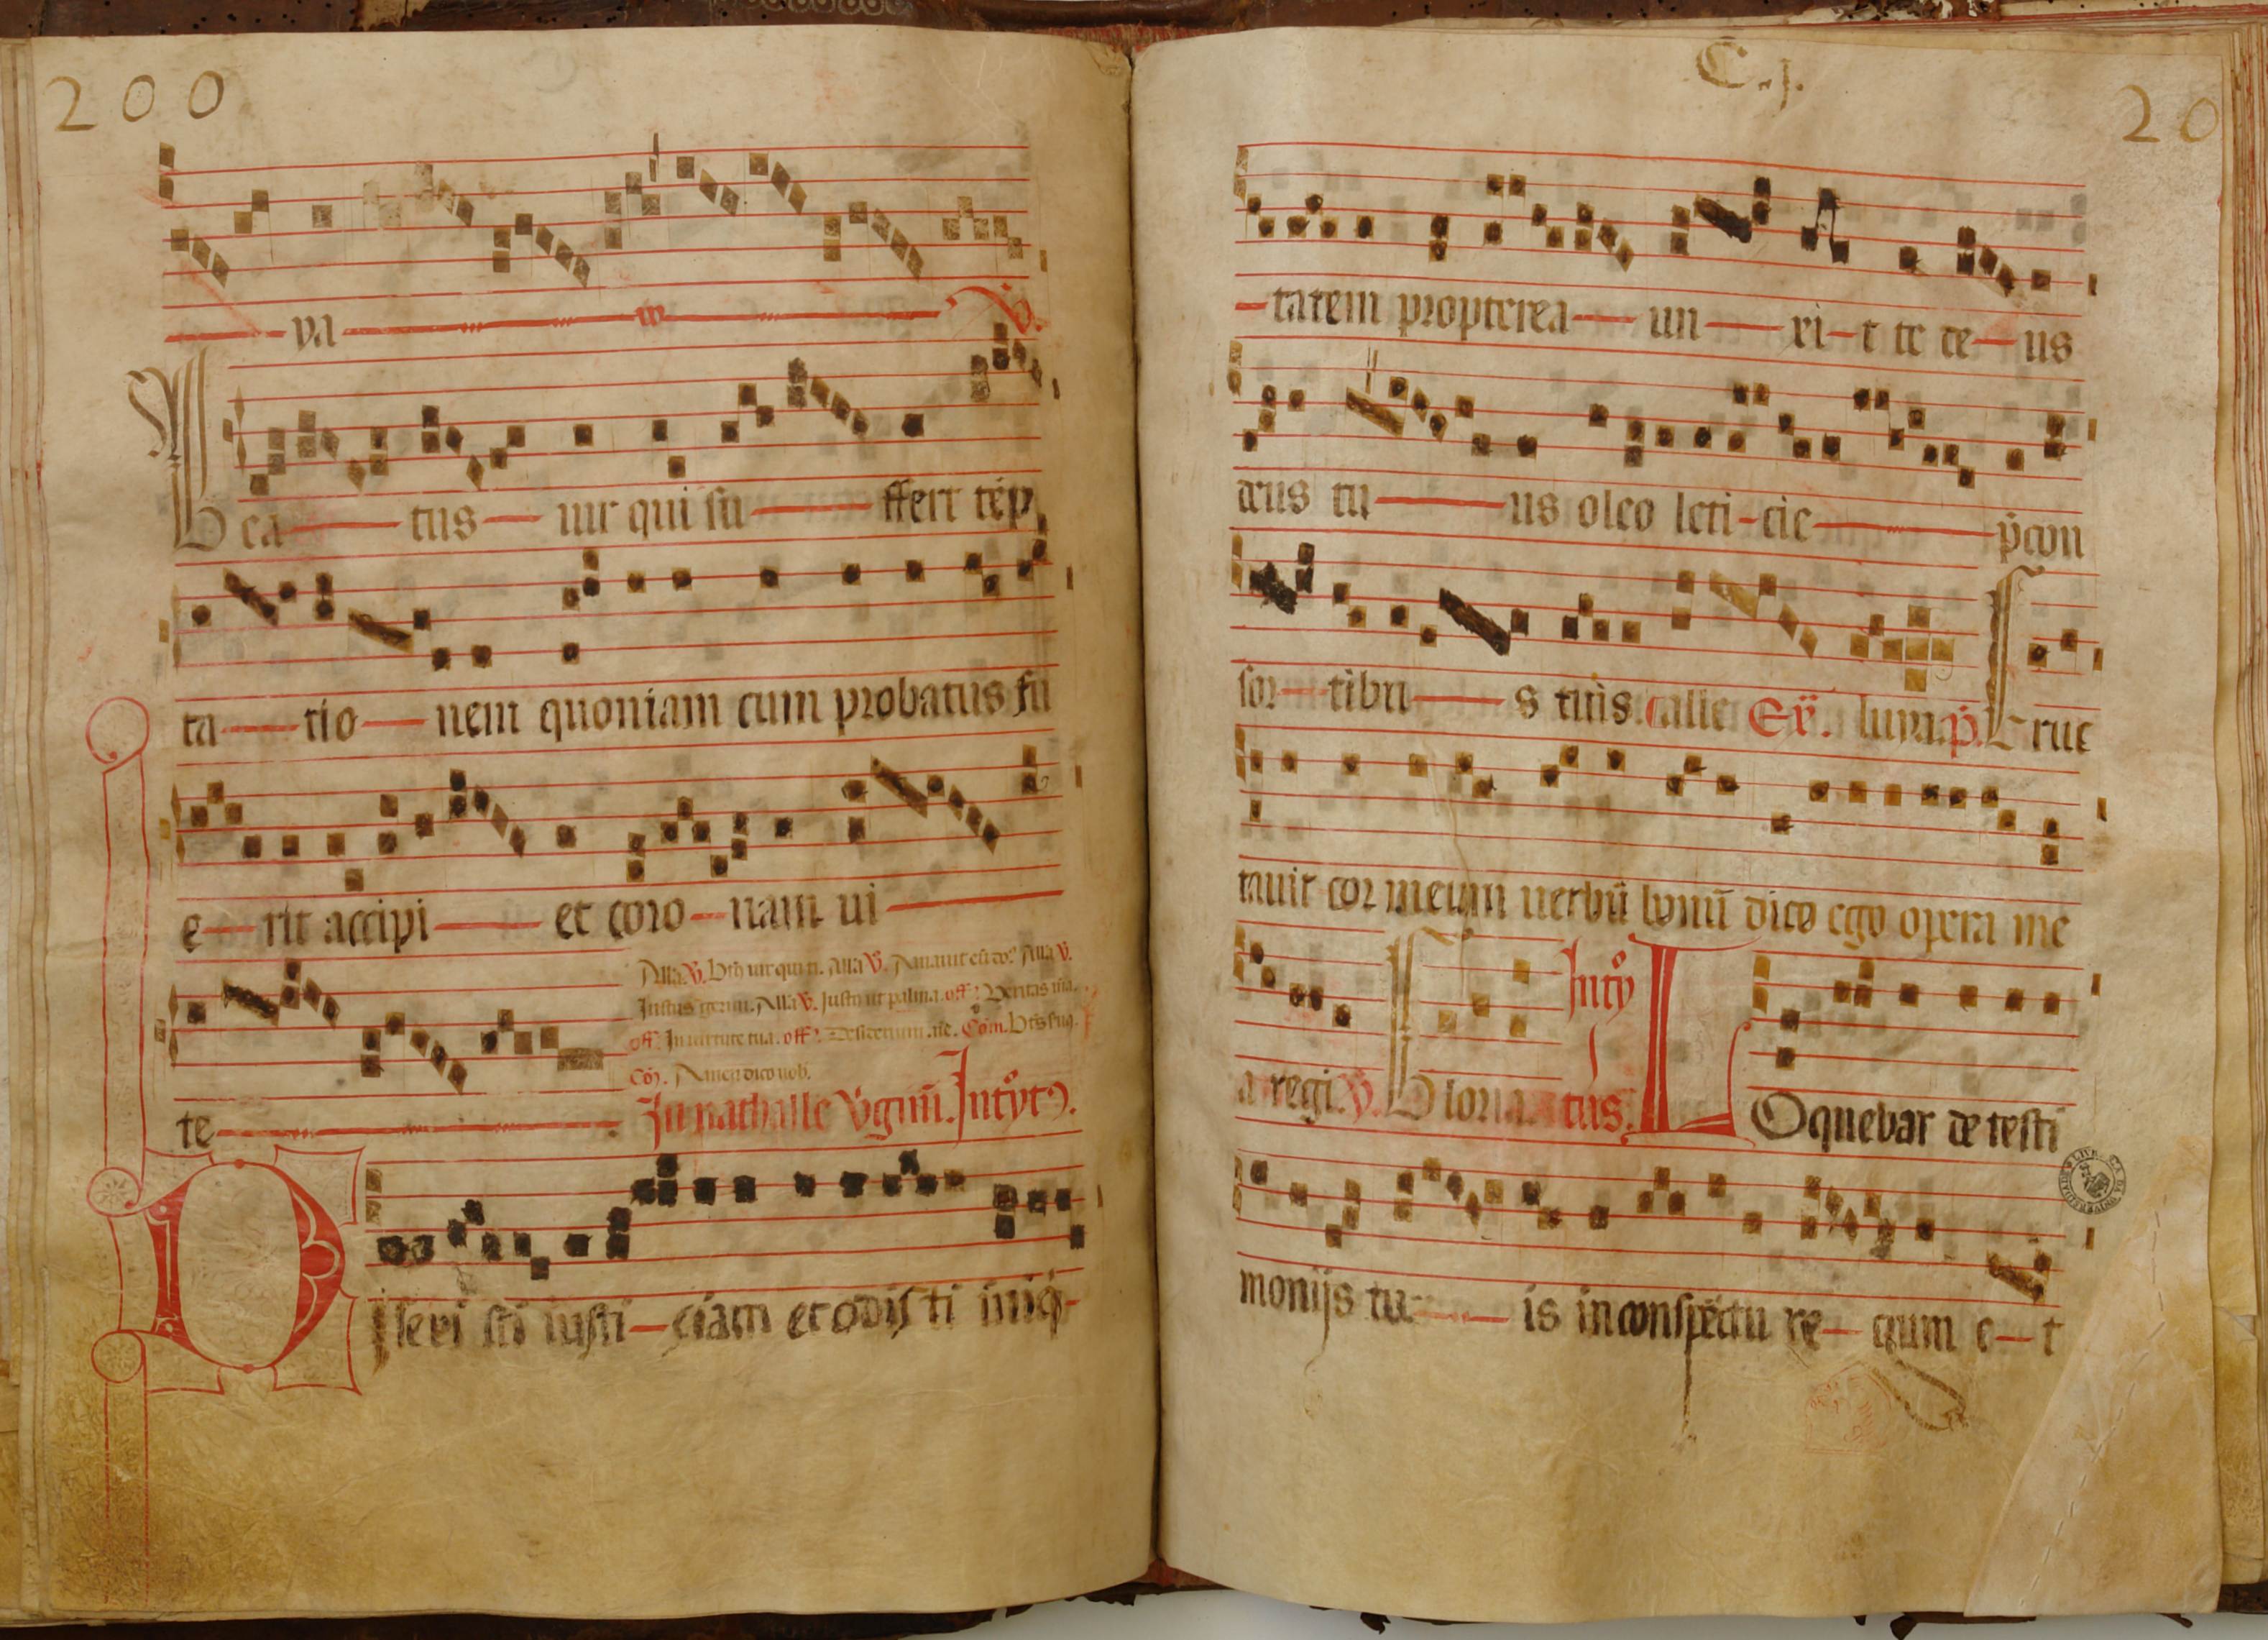 200
va
Bea tus uir qui su ffert tēp
ta tio nem quoniam cum probatus fu
e rit accipi et coro nam ui
Alla ℣. Btūs uir qui ti. Alla ℣. Amauit eū dn̄s. Alla ℣.
Iustus germ. Alla ℣. Iustus ut palma. off. Veritas m̄a.
off. In uirtute tua. off. Desiderium. aīe. Com̄. Btūs seruus.
Com̄. Amen dico uob.
te
In nathalle v̄ginū. Introyt9.
Dilexi sti iusti ciam et odis ti iniq̄
C. j.
20
tatem propterea un xi t te de us
deus tu us oleo leti cie p̄ con
sor tibu s tuis. alle Ev̄. luya. p̄. Eruc
tauit cor meum uerbū bonū dico ego opera me
a regi. ℣. Gloria. Introy
tus. Loquebar de testi
monijs tu is in conspectu re gum e t